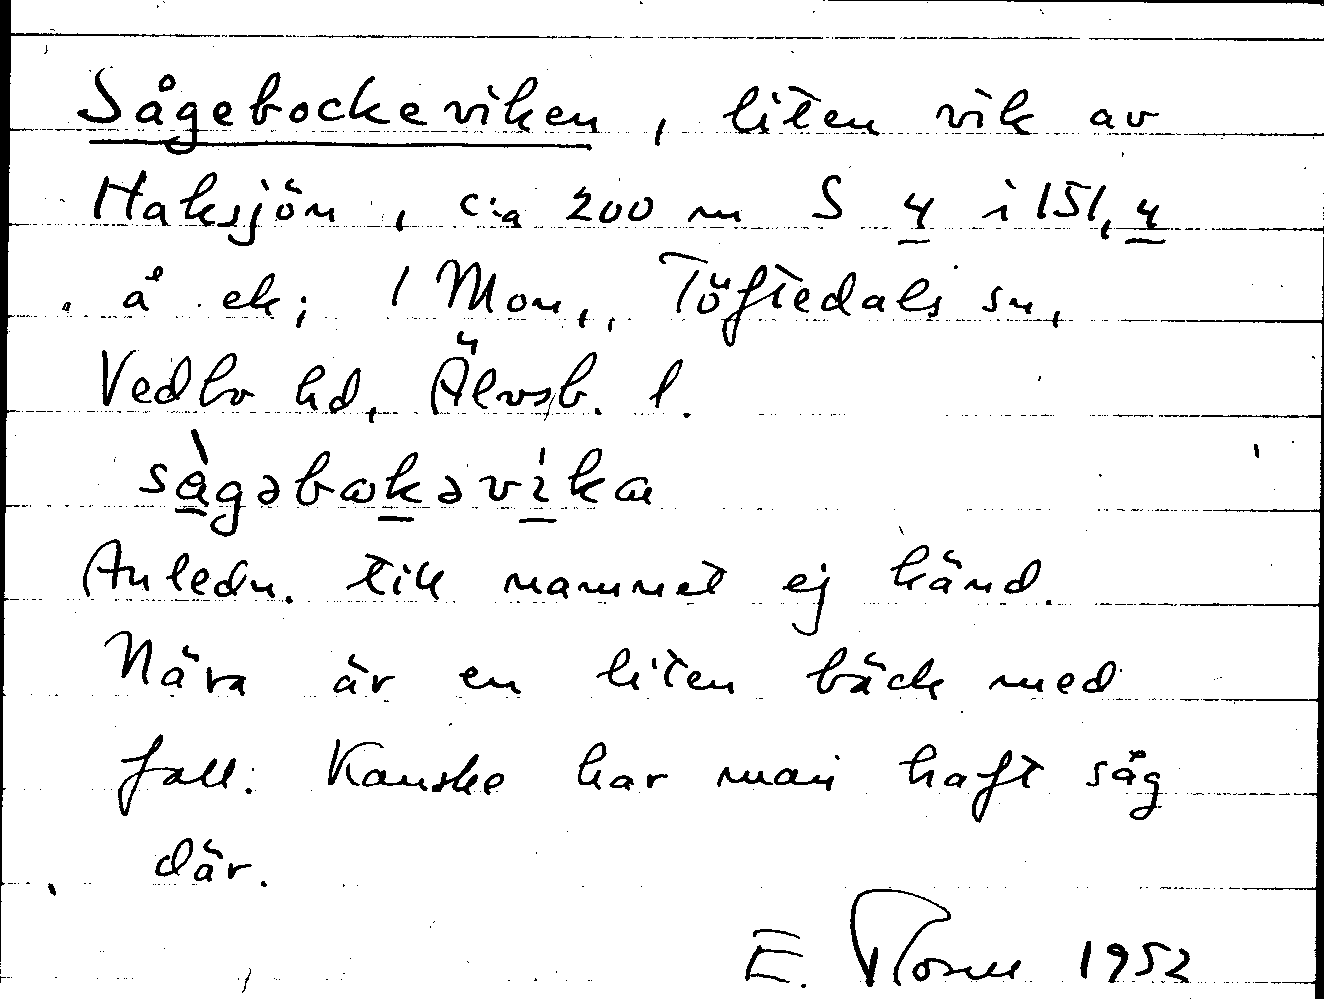 Sågebockeviken, liten vik av
Haksjön, c:a 200 m S 4 i 151,4
å ek; 1 Mon., Töftedals sn,
Vedbo hd, Älvsb. l.
sàgəbωkəvika
Anledn. till namnet ej känd.
Nära är en liten bäck med
fall. Kanske har man haft såg
där.
E. 1952